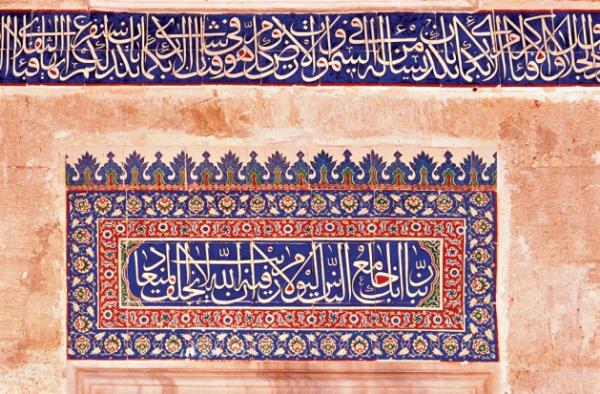 الجلال والاكرام فباى الاء ربكما تكذبان يسئله من فى السموات والارض كل يوم هو فى شان فباى الاء ربكما تكذبان سنفرغ لكم ايها الثقلان
ربنا انك جامع الناس ليوم لا ريب فيه ان الله لا يخلف الميعاد